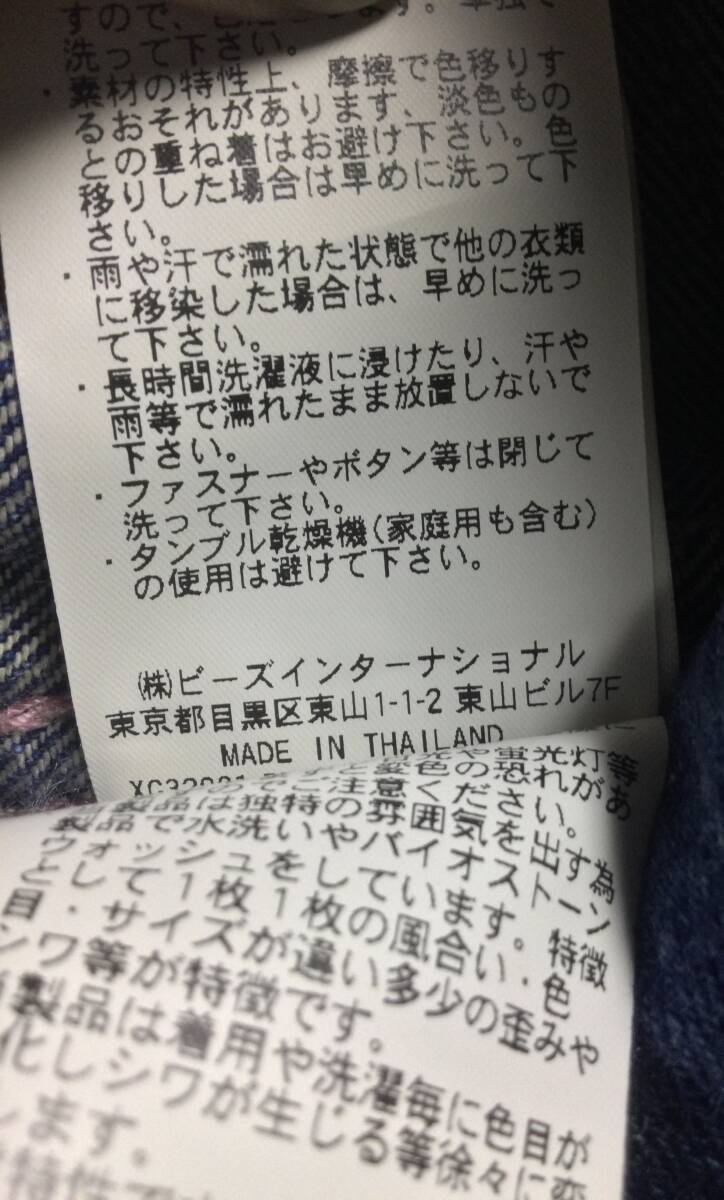 すので、
洗って下さい。
・素材の特性上、摩擦で色移りす
るおそれがあります、淡色もの
との重ね着はお避け下さい。色
移りした場合は早めに洗って下
さい。
・雨や汗で濡れた状態で他の衣類
に移染した場合は、早めに洗っ
て下さい。
・長時間洗濯液に浸けたり、汗や
雨等で濡れたまま放置しないで
下さい。
・ファスナーやボタン等は閉じて
洗って下さい。
・タンブル乾燥機(家庭用も含む)
の使用は避けて下さい。
㈱ビーズインターナショナル
東京都目黒区東山1-1-2 東山ビル7F
MADE IN THAILAND
や蛍光灯等
と変色の恐れがあ
のでご注意ください。
製品は独特の雰囲気を出す為
製品で水洗いやバイオストーン
ウォッシュをしています。特徴
として1枚1枚の風合い・色
目・サイズが違い多少の歪みや
シワ等が特徴です。
製品は着用や洗濯毎に色目が
化しシワが生じる等徐々に変
します。